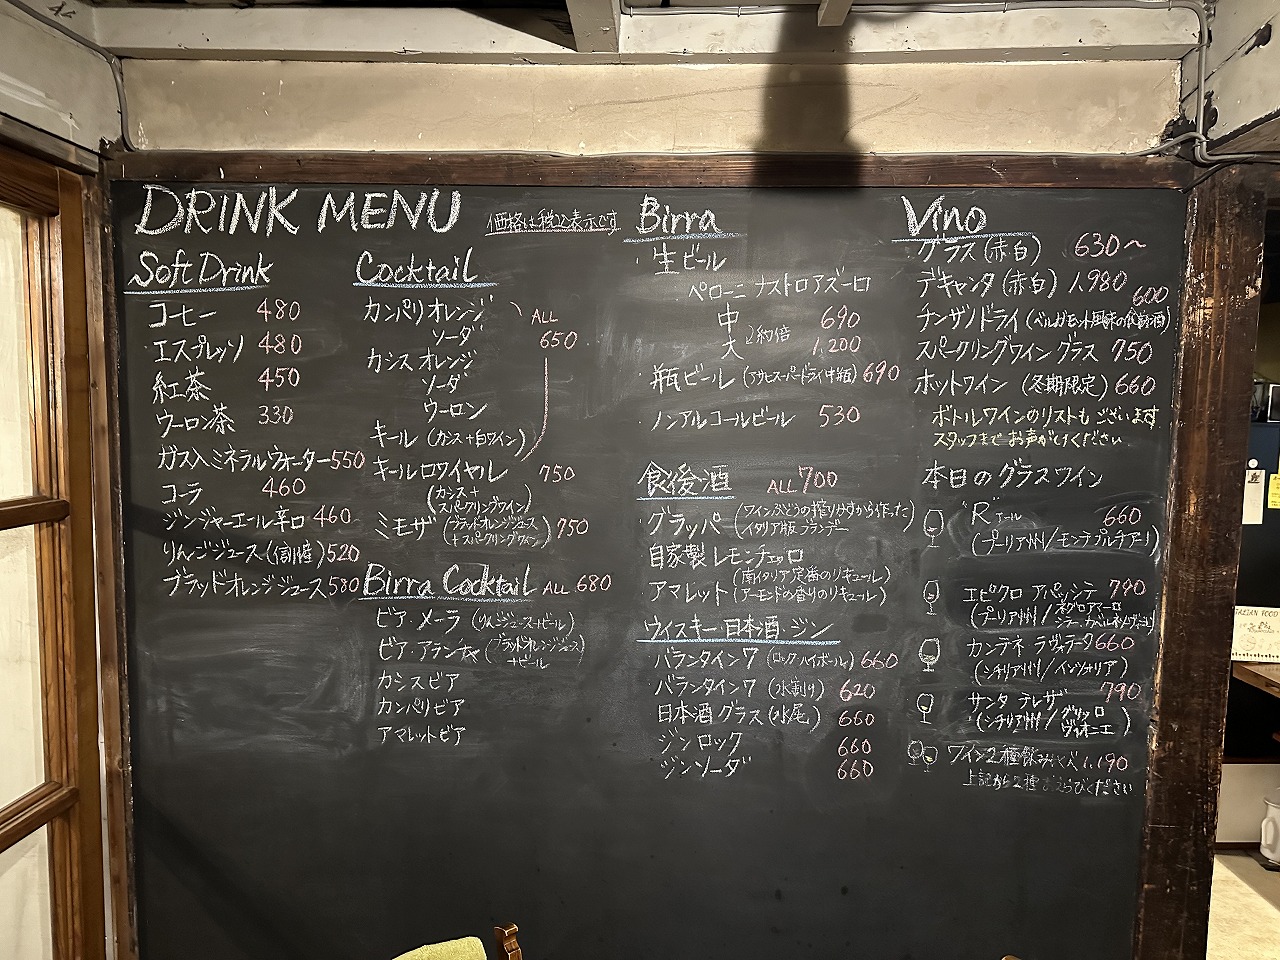 DRINK MENU
価格は税込表示です
Soft Drink
コーヒー 480
エスプレッソ 480
紅茶 450
ウーロン茶 330
ガス入ミネラルウォーター 550
コーラ 460
ジンジャーエール辛口 460
りんごジュース(信州産) 520
ブラッドオレンジジュース 580
Cocktail
カンパリオレンジ ALL
ソーダ 650
カシスオレンジ
ソーダ
ウーロン
キール (カシス+白ワイン)
キールロワイヤル 750
(カシス+
スパークリングワイン)
ミモザ (ブラッドオレンジジュース
+スパークリングワイン) 750
Birra Cocktail ALL 680
ビア・メーラ (りんごジュース+ビール)
ビア・アランチャ (ブラッドオレンジジュース
+ビール)
カシスビア
カンパリビア
アマレットビア
Birra
・生ビール
ペローニ ナストロアズーロ
中 690
大 2約倍 1,200
・瓶ビール (アサヒスーパードライ中瓶) 690
・ノンアルコールビール 530
食後酒 ALL 700
グラッパ (ワインぶどうの搾りかすから作った
イタリア版ブランデー
自家製 レモンチェッロ
(南イタリア定番のリキュール)
アマレット (アーモンドの香りのリキュール)
ウイスキー・日本酒・ジン
バランタイン7 (ロック/ハイボール) 660
バランタイン7 (水割り) 620
日本酒 グラス (水尾) 660
ジンロック 660
ジンソーダ 660
Vino
グラス(赤白) 630〜
デキャンタ(赤白) 1,980
チンザノドライ (ベルガモット風味の食前酒) 600
スパークリングワイン グラス 750
ホットワイン (冬期限定) 660
ボトルワインのリストもございます
スタッフまでお声がけください
本日のグラスワイン
"R" アール 660
(プーリア州/モンテプルチアーノ)
エピクロ アパッシテ 790
(プーリア州/ネグロアマーロ
カンテネ ラヴォラータ 660
(シチリア州/インツォリア)
サンタ テレザ 790
(シチリア州/グリッロ
ヴィオニエ)
ワイン2種飲みくらべ 1,190
上記から2種おえらびください